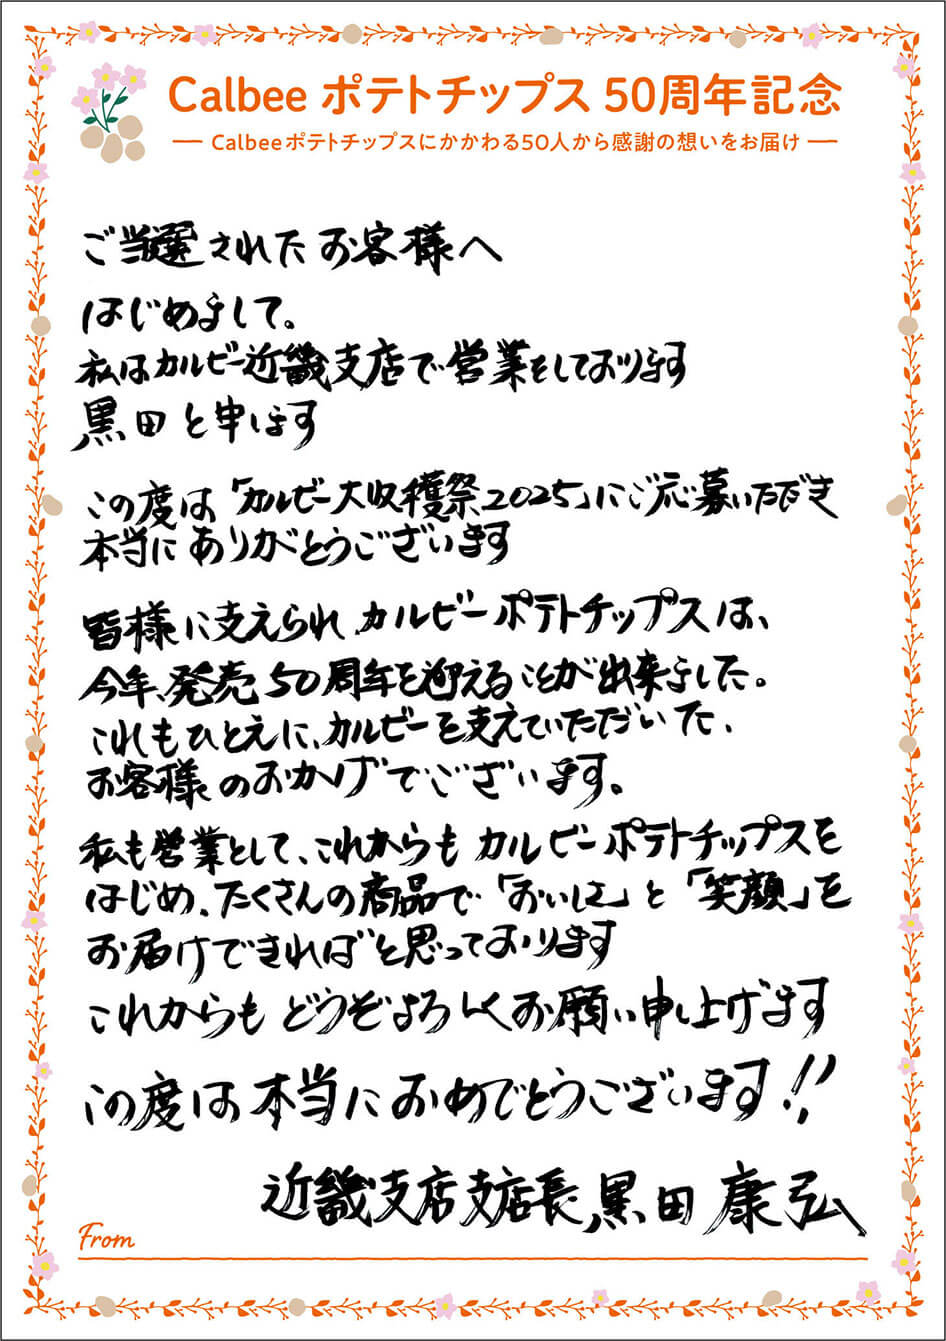 Calbee ポテトチップス 50周年記念
Calbeeポテトチップスにかかわる50人から感謝の想いをお届け
ご当選されたお客様へ
はじめまして。
私はカルビー近畿支店で営業をしております
黒田と申します
この度は「カルビー大収穫祭2025」にご応募いただき
本当にありがとうございます
皆様に支えられ、カルビーポテトチップスは、
今年、発売50周年を迎えることが出来ました。
これもひとえに、カルビーを支えていただいた、
お客様のおかげでございます。
私も営業として、これからもカルビーポテトチップスを
はじめ、たくさんの商品で「おいしさ」と「笑顔」を
お届けできればと思っております
これからもどうぞよろしくお願い申し上げます
この度は本当におめでとうございます!!
近畿支店支店長 黒田 康弘
From